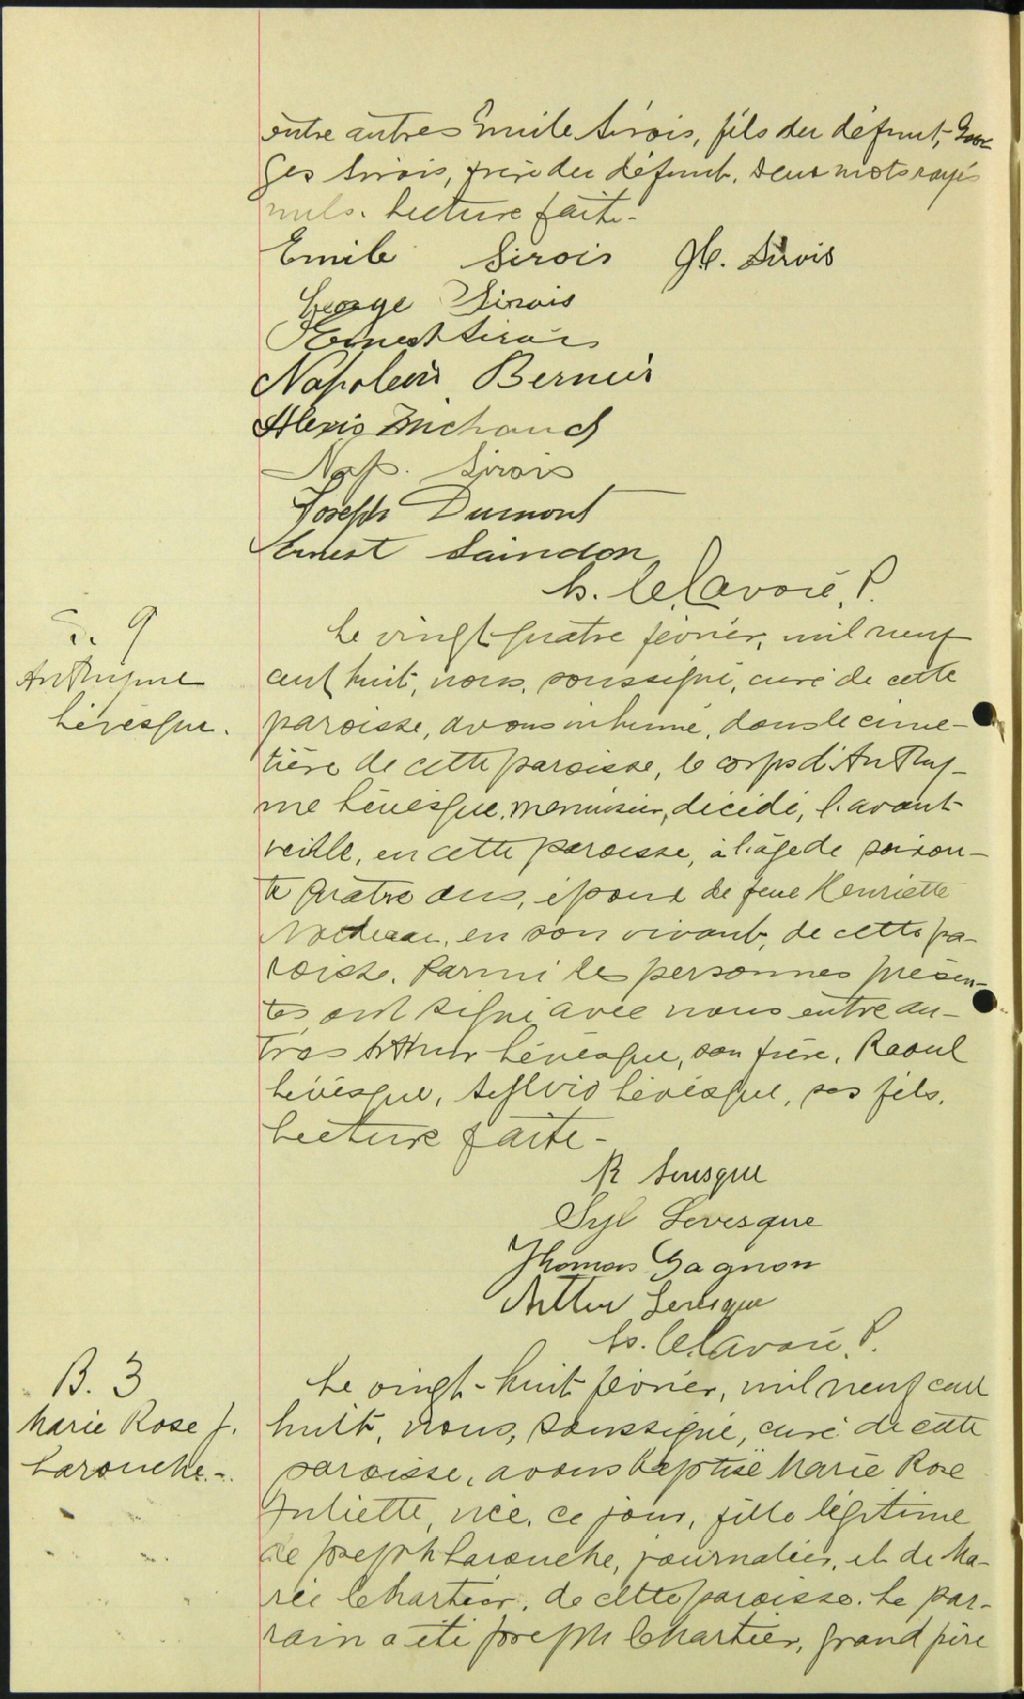 entre autres Emile Sirois, fils du défunt, Geor-
ges Sirois, frère du défunt. Deux mots rayés
nuls. Lecture faite-
Emile Sirois J.C. Sirois
George Sirois
Ernest Sirois
Napoleon Bernier
Alexis Michaud
Nap. Sirois
Joseph Dumont
Ernest Saindon
Le vingt-quatre février, mil neuf
S. 9
Anthyme
Lévesque.
cent huit, nous, soussigné, curé de cette
paroisse, avons inhumé, dans le cime-
tière de cette paroisse, le corps d'Anthy-
me Lévesque, menuisier, décédé, l'avant-
veille, en cette paroisse, à l'âge de soixan-
te quatre ans, époux de feue Henriette
Nadeau, en son vivant, de cette pa-
roisse. Parmi les personnes présen-
tes, ont signé avec nous entre au-
tres Arthur Lévesque, son frère, Raoul
Lévesque, Sylvio Lévesque, ses fils.
Lecture faite-
R Levesque
Syl Levesque
Thomas Gagnon
Arthur Levesque
B. 3
Marie Rose J.
Larouche.-
Le vingt-huit février, mil neuf cent
huit, nous, soussigné, curé de cette
paroisse, avons baptisé Marie Rose
Juliette, née, ce jour, fille légitime
de Joseph Larouche, journalier, et de Ma-
rie Chartier, de cette paroisse. Le par-
rain a été Joseph Chartier, grand père